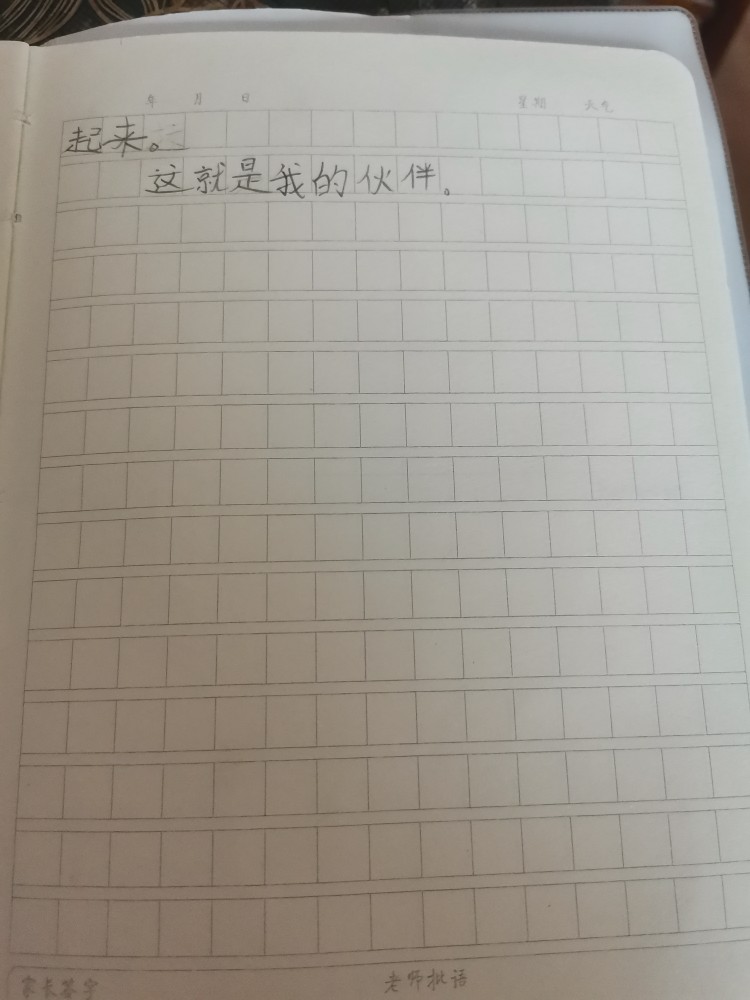 年 月 日 星期 天气
起来。
这就是我的伙伴。
家长签字 老师批语